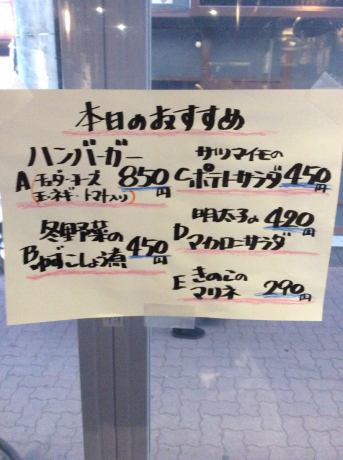 本日のおすすめ
ハンバーガー
A（チェダーチーズ 850円
玉ネギ・トマト入り）
冬野菜の
B ゆずこしょう煮 450円
サツマイモの
C ポテトサラダ 450円
明太子の 490円
D マカロニサラダ
E きのこの
マリネ 290円